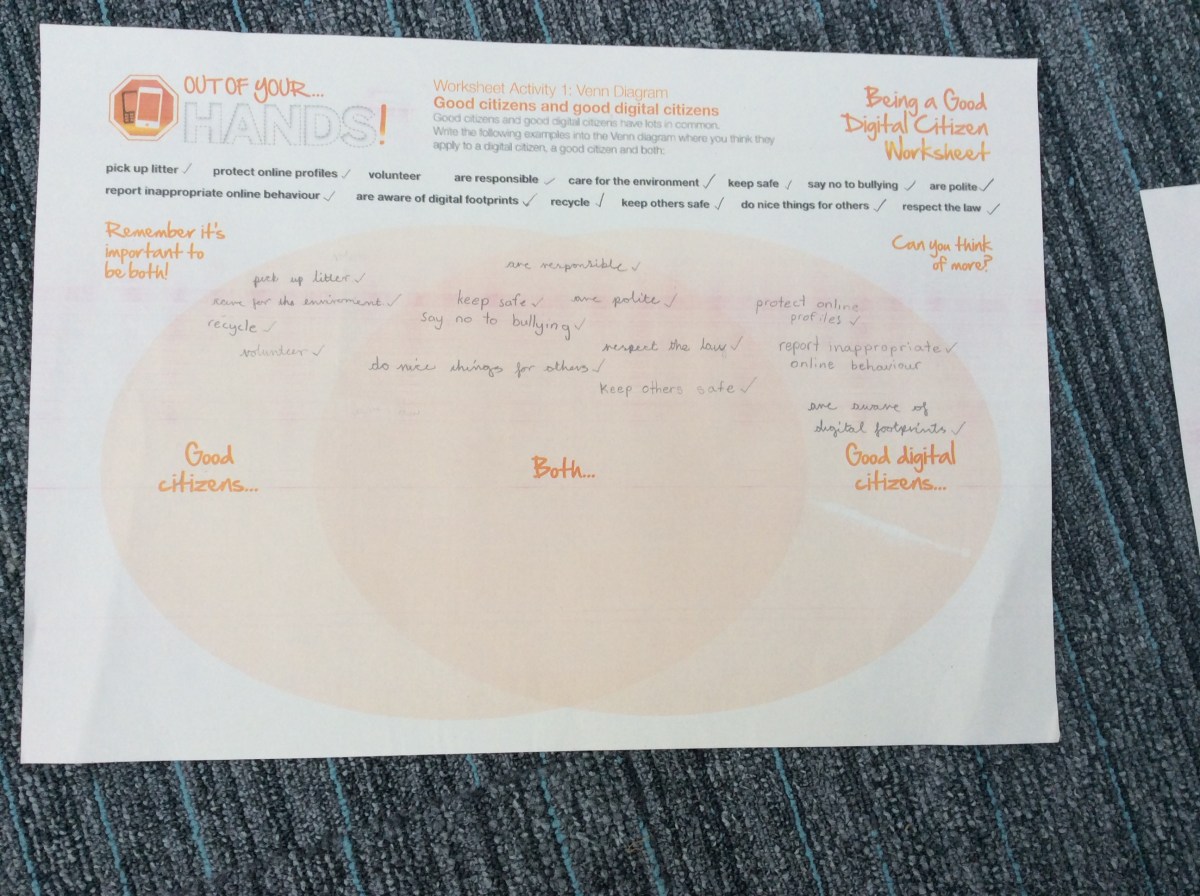 OUT OF YOUR...
HANDS!
Worksheet Activity 1: Venn Diagram
Good citizens and good digital citizens
Good citizens and good digital citizens have lots in common.
Write the following examples into the Venn diagram where you think they
apply to a digital citizen, a good citizen and both:
Being a Good
Digital Citizen
Worksheet
pick up litter ✓ protect online profiles ✓ volunteer are responsible ✓ care for the environment ✓ keep safe ✓ say no to bullying ✓ are polite ✓
report inappropriate online behaviour ✓ are aware of digital footprints ✓ recycle ✓ keep others safe ✓ do nice things for others ✓ respect the law ✓
Remember it's
important to
be both!
Can you think
of more?
pick up litter ✓
care for the environment ✓
recycle ✓
volunteer ✓
are responsible ✓
keep safe ✓ are polite ✓
say no to bullying ✓
respect the law ✓
do nice things for others ✓
keep others safe ✓
protect online
profiles ✓
report inappropriate ✓
online behaviour
are aware of
digital footprints ✓
Good
citizens...
Both...
Good digital
citizens...